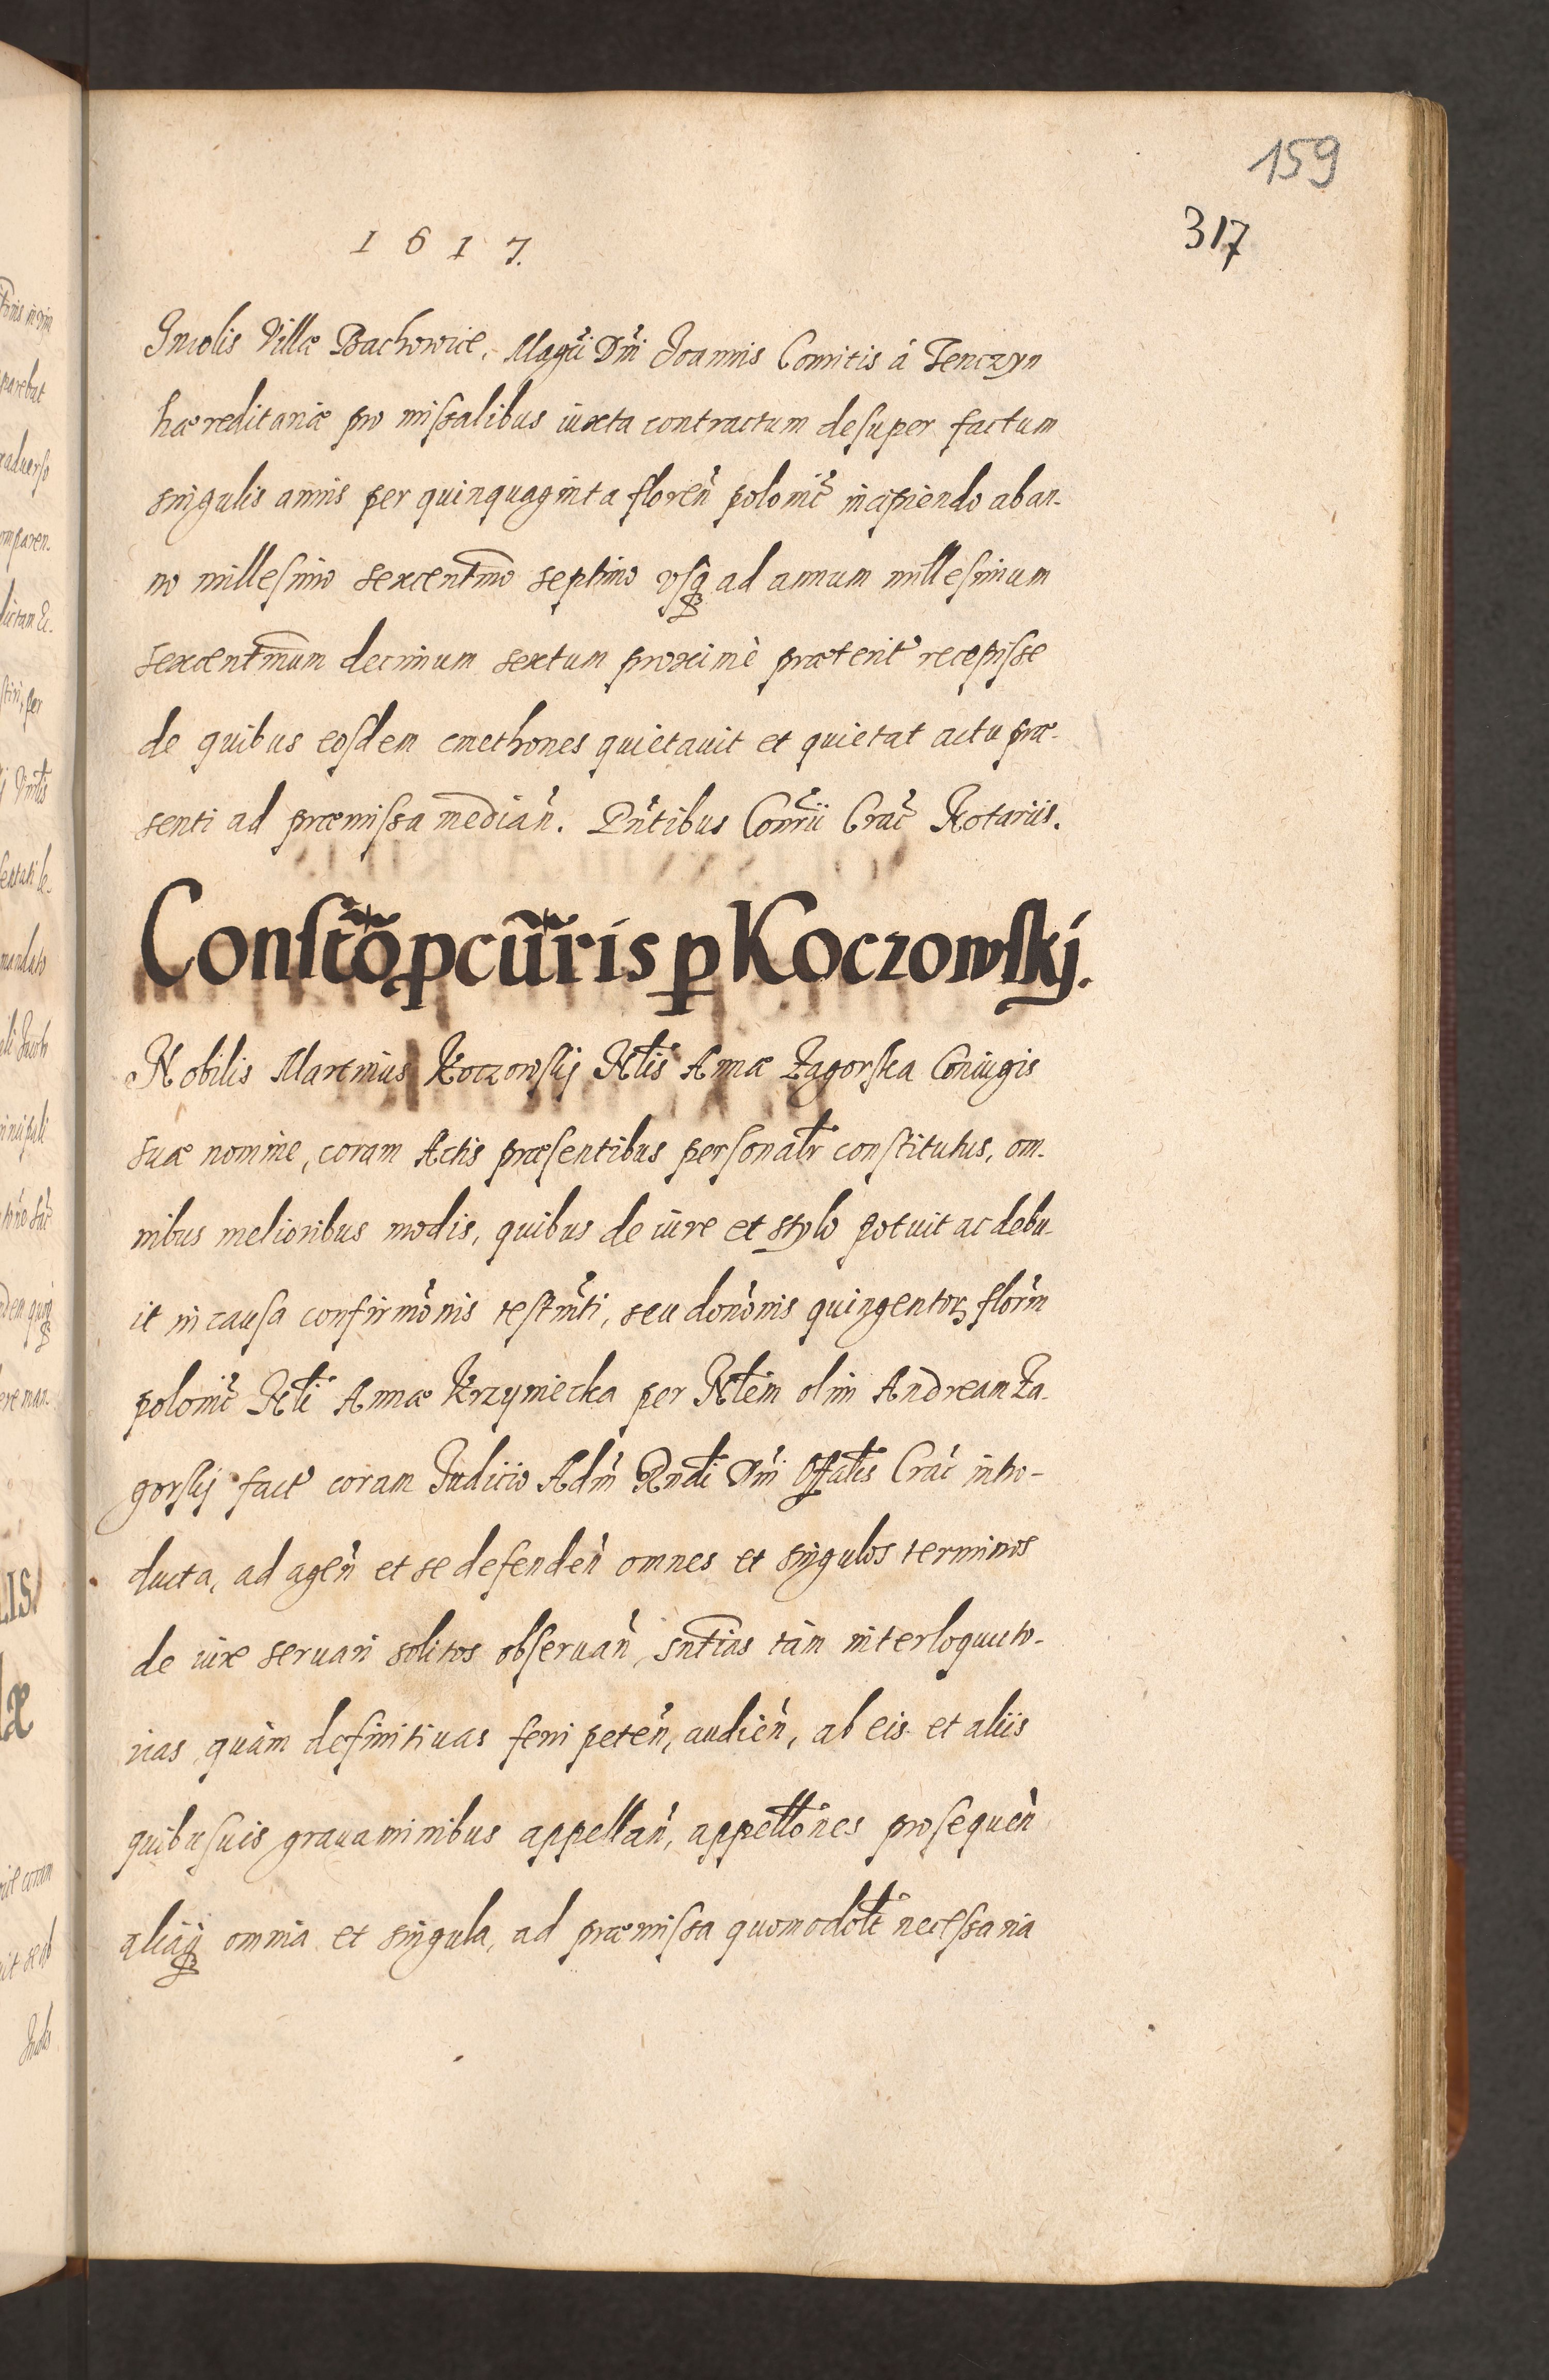 159
317
1617.
Incolis Villæ Bachowice, Magci Dni Joannis Comitis à Tenczyn
hæreditariæ pro missalibus iuxta contractum desuper factum
singulis annis per quinquaginta floren̄ polonic̄ incipiendo ab an-
no millesimo sexcentmo septimo usq̄ ad annum millesimum
sexcentmum decimum sextum proximè præterit̄ recepisse
de quibus eosdem cmethones quietauit et quietat actu præ-
senti ad præmissa median̄. Pn̄tibus Conr̄ii Crac̄ Notariis.
Constō pcūris p Koczowskj.
Nobilis Martinus Koczowskj Nlis Annæ Zagorska Coniugis
suæ nomine, coram Actis præsentibus personalr constitutus, om-
nibus melioribus modis, quibus de iure et stylo potuit ac debu-
it in causa confirmōnis testm̄ti, seu donōnis quingentoꝝ florm̄
polonic̄ Nli Annæ Krzyniecka per Nlem olim Andream Za-
gorskj fact̄ coram Judicio Adm̄ Rndi Dn̄i Offalis Crac̄ intro-
ducta, ad agen̄ et se defenden̄ omnes et singulos terminos
de iure seruari solitos obseruan̄, sn̄tias tàm interloquuto-
rias quàm definitiuas feri peten̄, audien̄, ab eis et aliis
quibusuis grauaminibus appellan̄, appellōnes prosequen̄
aliaq̄ omnia et singula, ad præmissa quomodolt necessaria